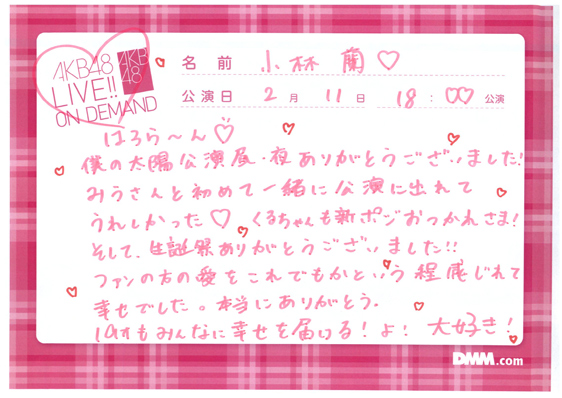 AKB48
LIVE!!
ON DEMAND
AKB
48
名前 小林蘭♡
公演日 2月11日 18:00 公演
はろら〜ん♡
僕の太陽公演昼・夜ありがとうございました!
みうさんと初めて一緒に公演に出れて
うれしかった♡ くるちゃんも新ポジおつかれさま!
そして、生誕祭ありがとうございました!!
ファンの方の愛をこれでもかという程感じれて
幸せでした。本当にありがとう.
19才もみんなに幸せを届ける!よ! 大好き!
DMM.com